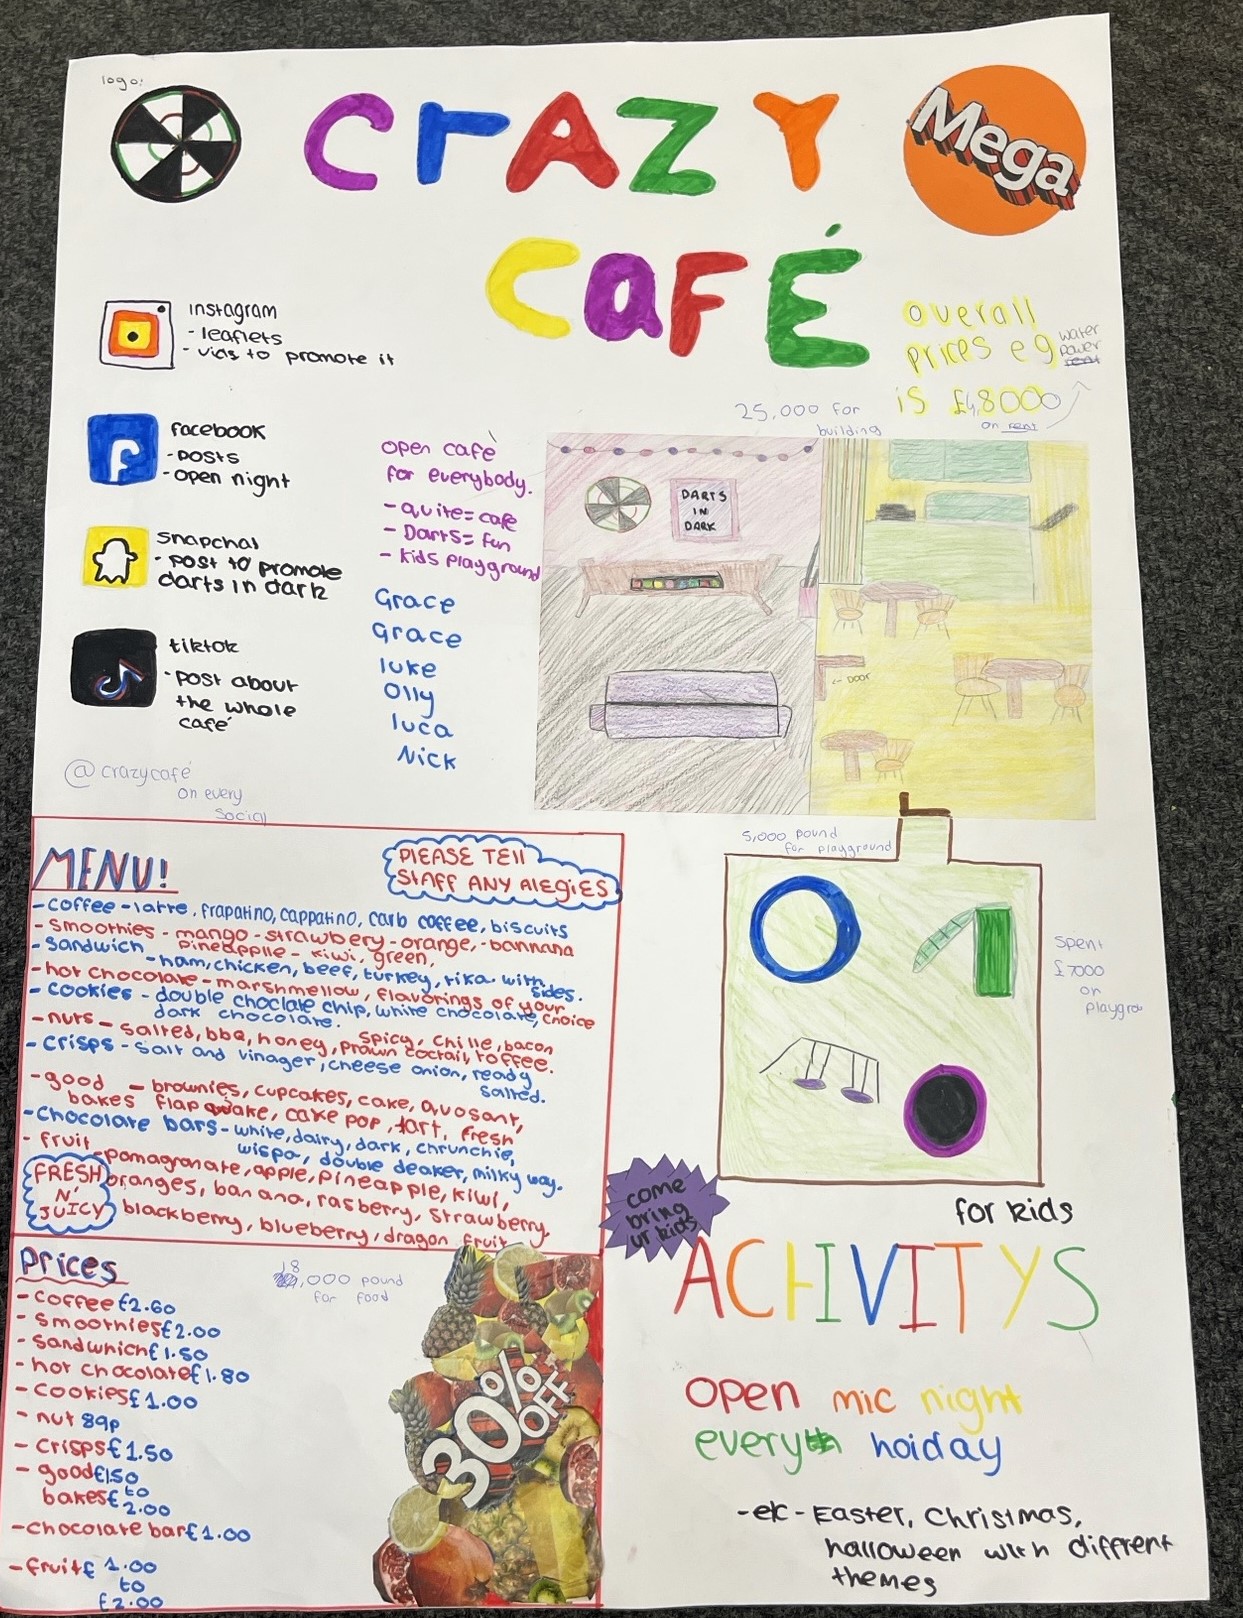 logo:
CrAZY
CaFÉ
Mega
instagram
- leaflets
- vids to promote it
facebook
- posts
- open night
snapchat
- post to promote
darts in dark
tiktok
- post about
the whole
café
@crazycafé
on every
social
open café
for everybody.
- quite = cafe
- Darts = fun
- kids playground
Grace
Grace
luke
Olly
luca
Nick
overall
prices eg water
power
is £48000
on rent
25,000 for
building
DARTS
IN
DARK
← DOOR
MENU!
PlEASE TEll
STAFF ANY AlEGiES
- coffee - latte, frapatino, cappatino, carb coffee, biscuits
- smoothies - mango - strawbery - orange, - bannana
pineapple - kiwi, green,
- sandwich - ham, chicken, beef, turkey, tika with
sides.
- hot chocolate - marshmellow, flavorings of your
choice
- cookies - double choclate chip, white chocolate,
dark chocolate.
- nuts - salted, bbq, honey, spicy, chille, bacon
- crisps - salt and vinager, prawn coctail, toffee.
cheese onion, ready
salted.
- good
bakes - brownies, cupcakes, cake, quosant,
flap quake, cake pop, tart, fresh
- chocolate bars - white, dairy, dark, chrunchie,
wispa, double deaker, milky way.
- fruit - pomagranate, apple, pineapple, kiwi,
oranges, banana, rasberry, strawberry,
blackberry, blueberry, dragon fruit
FRESH
N'
JUICY
Prices
- coffee £2.60
- smoothies £2.00
- sandwhich £1.50
- hot chocolate £1.80
- cookies £1.00
- nut 89p
- crisps £1.50
- good £1.50
bakes to
£2.00
- chocolate bar £1.00
- fruit £1.00
to
£2.00
18,000 pound
for food
30%
OFF
5,000 pound
for playground
spent
£7000
on
playgro
come
bring
ur kids
for kids
ACHIVITYS
open mic night
every hoiday
- etc - Easter, Christmas,
halloween with different
themes